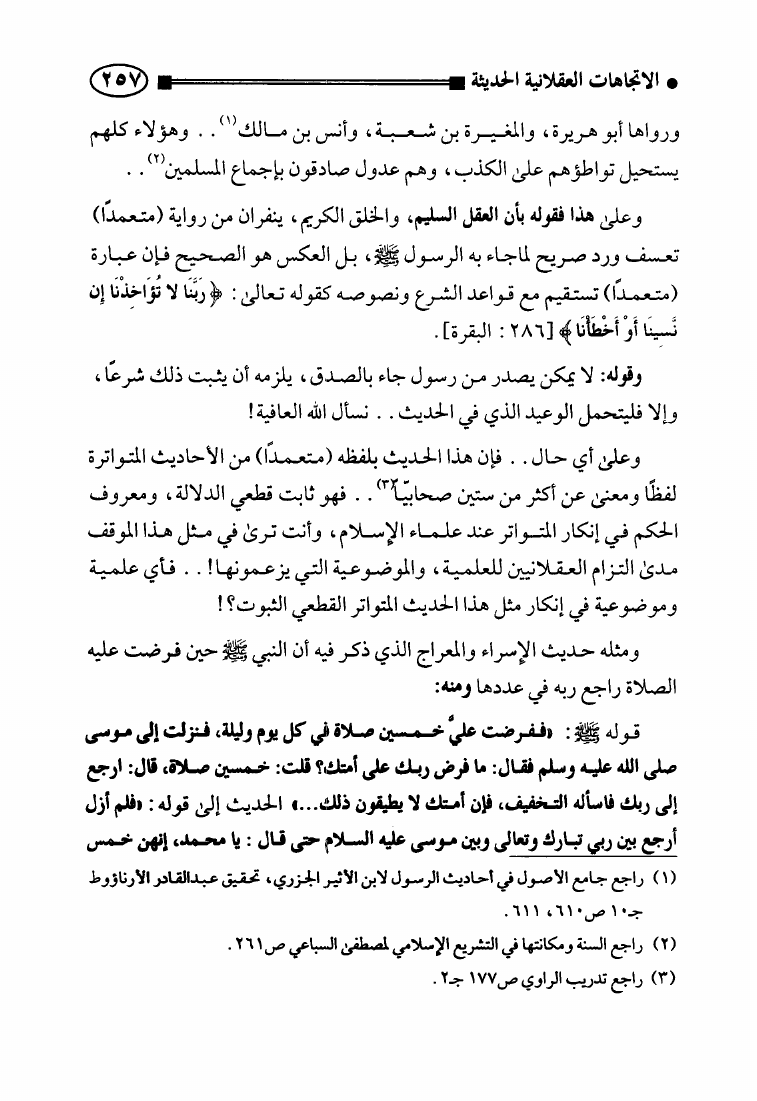 ● الاتجاهات العقلانية الحديثة ٢٥٧
ورواها أبو هريرة، والمغيرة بن شعبة، وأنس بن مالك(١).. وهؤلاء كلهم
يستحيل تواطؤهم على الكذب، وهم عدول صادقون بإجماع المسلمين(٢)..
وعلى هذا فقوله بأن العقل السليم، والخلق الكريم، ينفران من رواية (متعمدًا)
تعسف ورد صريح لما جاء به الرسول ﷺ، بل العكس هو الصحيح فإن عبارة
(متعمدًا) تستقيم مع قواعد الشرع ونصوصه كقوله تعالى: ﴿رَبَّنَا لا تُؤَاخِذْنَا إِن
نَّسِينَا أَوْ أَخْطَأْنَا﴾ [٢٨٦ : البقرة].
وقوله: لا يمكن يصدر من رسول جاء بالصدق، يلزمه أن يثبت ذلك شرعًا،
وإلا فليتحمل الوعيد الذي في الحديث.. نسأل الله العافية!
وعلى أي حال.. فإن هذا الحديث بلفظه (متعمدًا) من الأحاديث المتواترة
لفظًا ومعنى عن أكثر من ستين صحابيًا(٣).. فهو ثابت قطعي الدلالة، ومعروف
الحكم في إنكار المتواتر عند علماء الإسلام، وأنت ترى في مثل هذا الموقف
مدى التزام العقلانيين للعلمية، والموضوعية التي يزعمونها!.. فأي علمية
وموضوعية في إنكار مثل هذا الحديث المتواتر القطعي الثبوت؟!
ومثله حديث الإسراء والمعراج الذي ذكر فيه أن النبي ﷺ حين فرضت عليه
الصلاة راجع ربه في عددها ومنه:
قوله ﷺ: «ففرضت عليَّ خمسين صلاة في كل يوم وليلة، فنزلت إلى موسى
صلى الله عليه وسلم فقال: ما فرض ربك على أمتك؟ قلت: خمسين صلاة، قال: ارجع
إلى ربك فاسأله التخفيف، فإن أمتك لا يطيقون ذلك...» الحديث إلى قوله: «فلم أزل
أرجع بين ربي تبارك وتعالى وبين موسى عليه السلام حتى قال : يا محمد، إنهن خمس
(١) راجع جامع الأصول في أحاديث الرسول لابن الأثير الجزري، تحقيق عبدالقادر الأرناؤوط
جـ١٠ ص٦١٠، ٦١١.
(٢) راجع السنة ومكانتها في التشريع الإسلامي لمصطفى السباعي ص٢٦١.
(٣) راجع تدريب الراوي ص١٧٧ جـ٢.